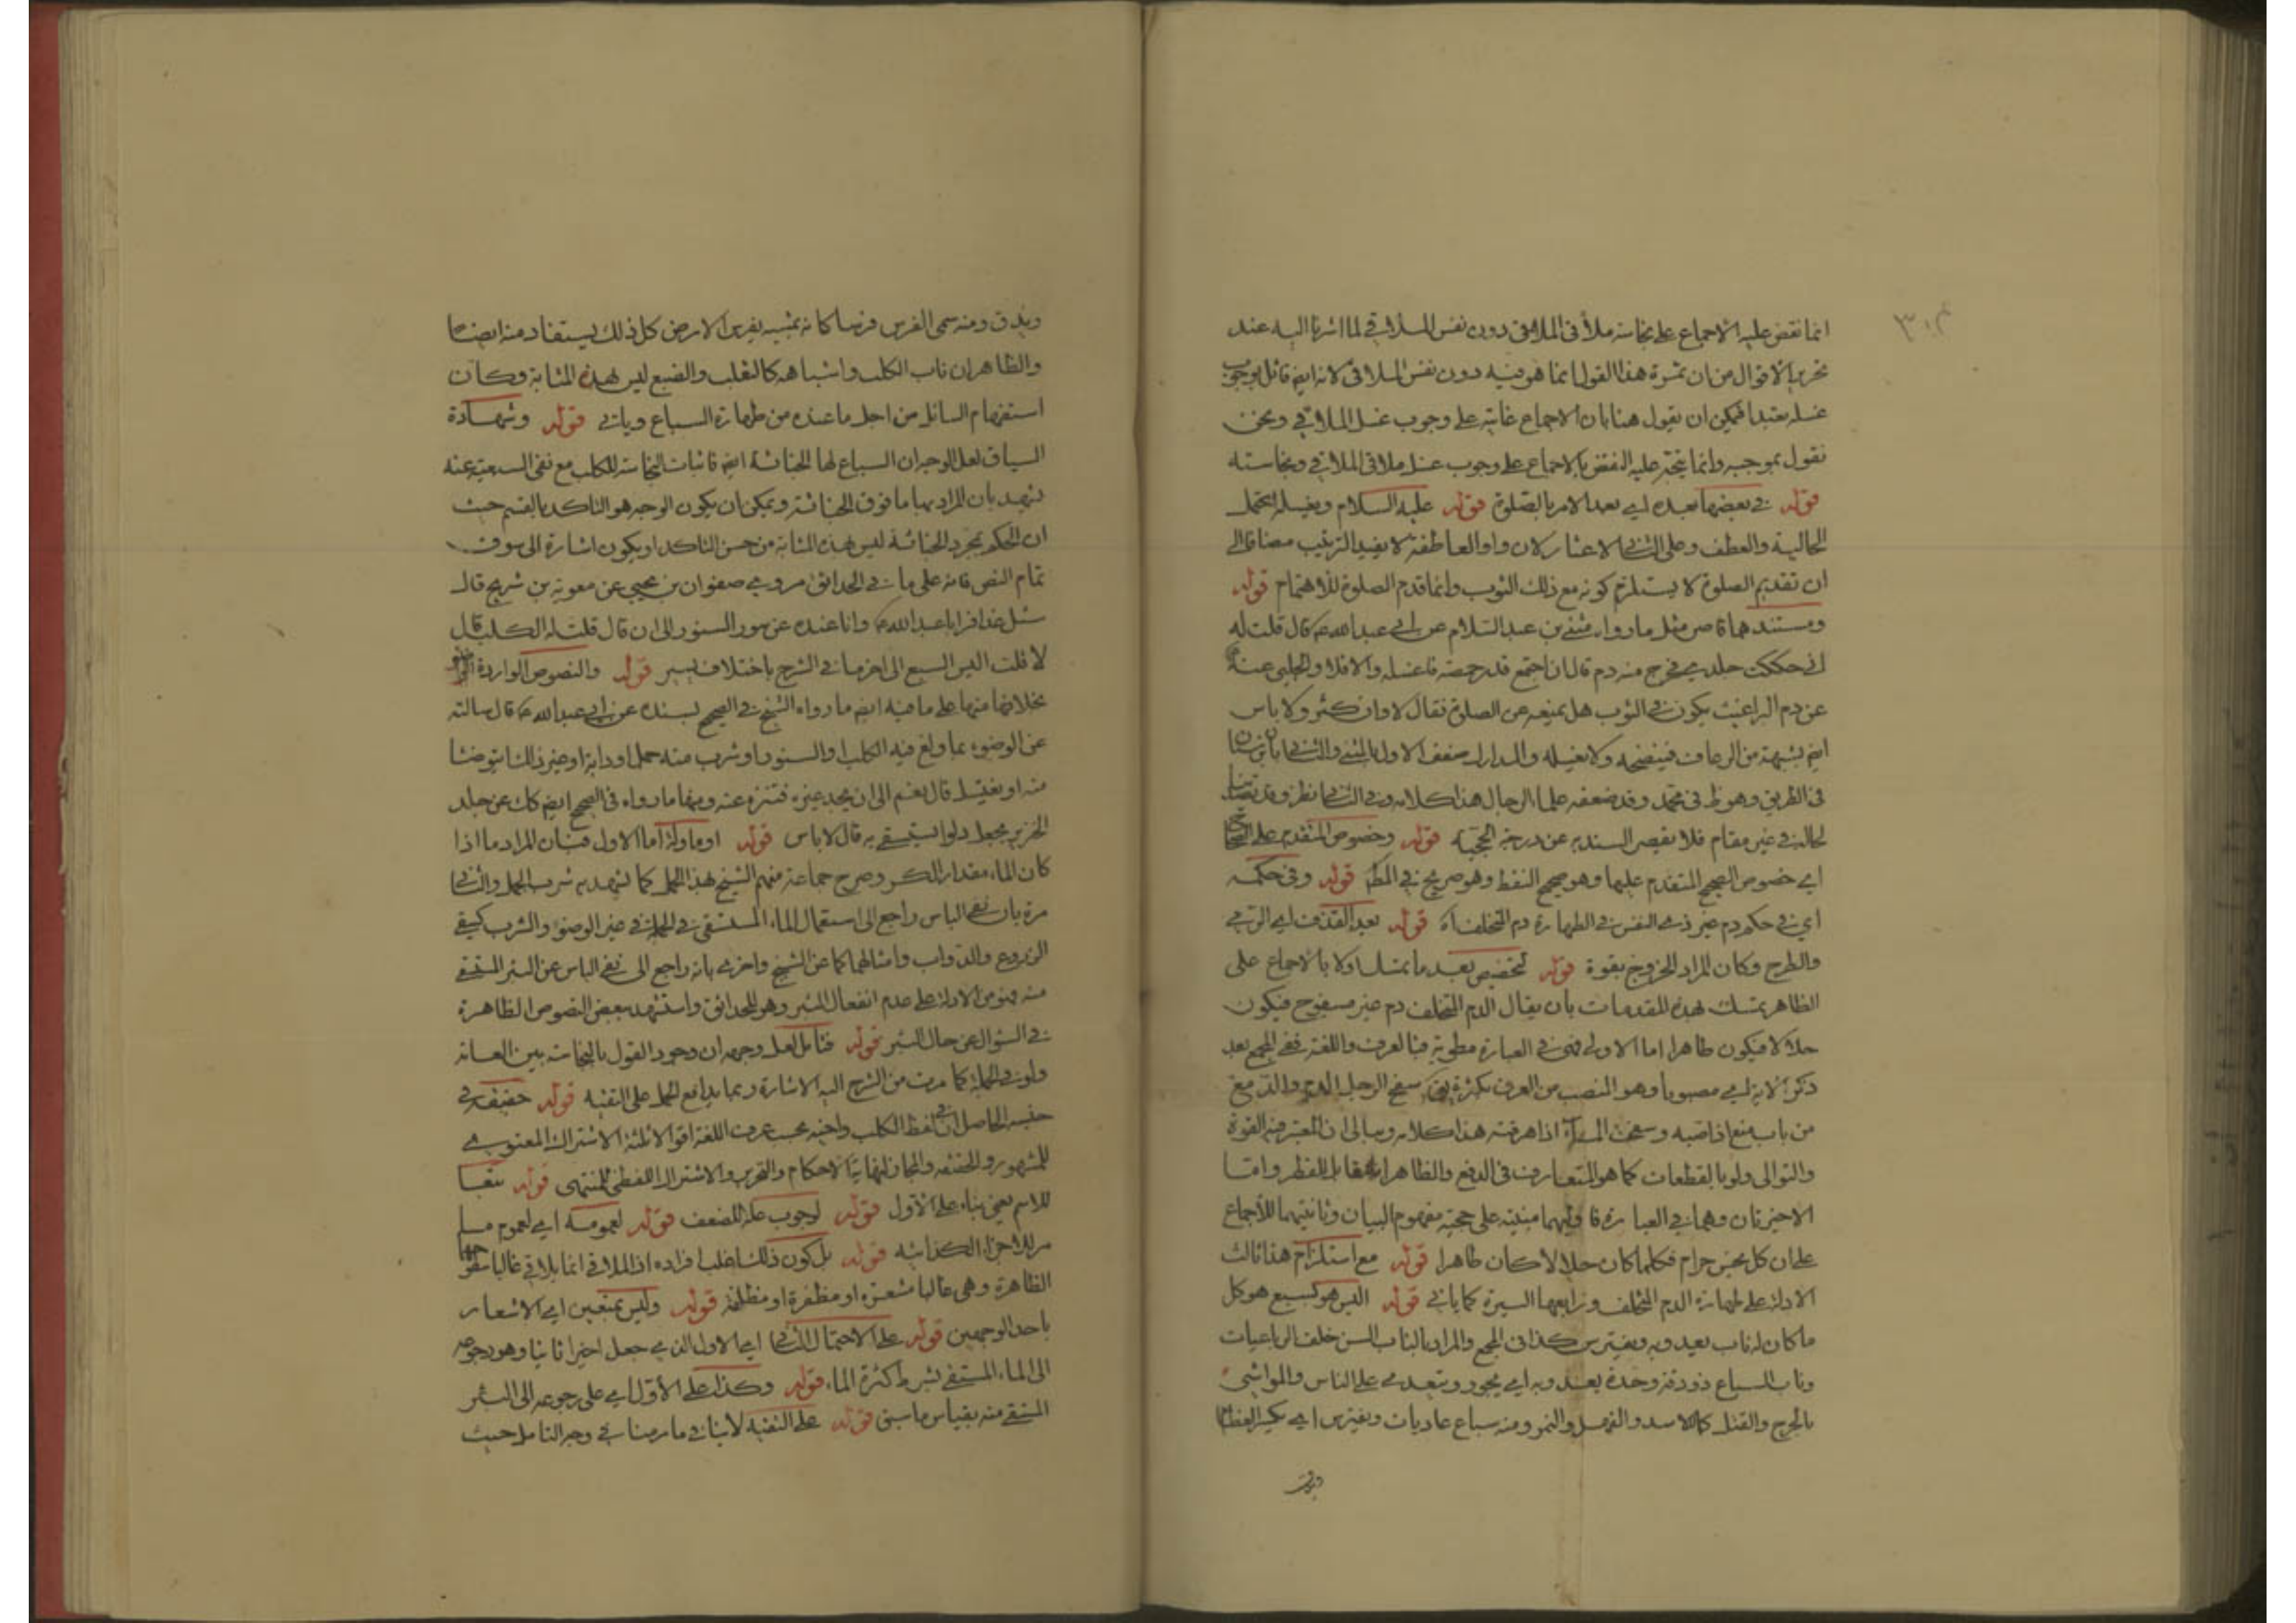 انما نقض عليه الاجماع على نجاسة ملاقى الملاقى دون نفس الملاقى لما اشرنا اليه عند
تحرير الاقوال من ان ثمرة هذا القول انما هو فيه دون نفس الملاقى لانه ايض قائل بوجوب
غسله تعبدا فيمكن ان يقول هنا بان الاجماع غايته على وجوب غسل الملاقى ونحن
نقول بموجبه وانما يتجه عليه النقض بالاجماع على وجوب غسل ملاقى الملاقى ونجاسته
قوله في بعضها بعده اي بعد الامر بالصلوة قوله عليه السلام ويغسله يحتمل
الحالية والعطف وعلى الثاني لان واو العاطفة لا يفيد الترتيب مضافا الى
ان تقديم الصلوة لا يستلزم كونه مع ذلك الثوب وانما قدم الصلوة للاهتمام قوله
ومستندهما قاصر مثل ما رواه مثنى بن عبد السلام عن ابي عبد الله ع قال قلت له
اني حككت جلدي فخرج منه دم قال ان اجتمع قدر حمصة فاغسله والا فلا والحلبي عنه
عن دم البراغيث يكون في الثوب هل يمنعه عن الصلوة فقال لا وان كثر ولا باس
ايض بشبهه من الرعاف فينضحه ولا يغسله والمدارك ضعف الاول بالمثنى والثاني بابن سنان
في الطريق وهو محمد وقد ضعفه علماء الرجال هذا كلامه وفي الثاني نظر وقد
حاله في غير مقام فلا يقصر السند به عن درجة الحجية قوله وخصوص المتقدم على
اي خصوص الصحيح المتقدم عليها وهو صحيح النقط وهو صريح في المط قوله وفي حكمه
اي في حكم دم غير ذي النفس في الطهارة دم المتخلف اه قوله بعد القذف اي الرمي
والطرح وكان المراد الخروج بقوة قوله لتخصيص بعد ما تمسك اولا بالاجماع على
الظاهر تمسك بهذه المقدمات بان يقال الدم المتخلف دم غير مسفوح فيكون
حلالا فيكون طاهرا اما الاولى فهى في العبارة مطوية فبالعرف واللغة ففي المجمع بعد
ذكر الاية اي مصبوبا وهو النصب من العرق بكثرة سفح الرجل الدم والدمع
من باب منع اذا صبه وسفحت الماء اذا هرقته هذا كلامه القوة
والتوالى ولو بالقطعات كما هو المتعارف في الدفع والظاهر انه مقابل القطر واما
الاخيرتان وهما في العبارة فاوليهما مبنية على حجية مفهوم البيان وثانيتهما للاجماع
على ان كل نجس حرام فكلما كان حلالا كان طاهرا قوله مع استلزام هذا ثالث
الادلة على طهارة الدم المتخلف ورابعها السيرة كما ياتى قوله اليس هو كسبع هو كل
ما كان له ناب يعدو به ويفترس كذا في المجمع والمراد بالناب السن خلف الرباعيات
وناب السباع ذو دقة وحدة يعدو به اي يجور ويتعدى على الناس والمواشي
بالجرح والقتل كالاسد والنمر ومنه سباع عاديات ويفترس اي يكسر العظام
ويدق
ويدق ومنه سمى الفرس فرسا كانه بمشيه يفرس الارض كل ذلك يستفاد منه ايضا
والظاهر ان ناب الكلب واشباهه كالثعلب والضبع ليس بهذه المثابة وكان
استفهام السائل من اجل ما عنده من طهارة السباع وياتى قوله وشهادة
السياق لعل الوجه ان السباع لها الخباثة ايض فاثبات النجاسة للكلب مع نفي السبعية عنه
تشهد بان المراد بها ما فوق الخباثة ويمكن ان يكون الوجه هو التاكد بالقسم حيث
ان الحكم بمجرد الخباثة ليس بهذه المثابة من حسن التاكد او يكون اشارة الى سوق
تمام النص فانه على ما في الحدائق مروي صفوان بن يحيى عن معوية بن شريح قال
سئل عذافر ابا عبد الله ع وانا عنده عن سور السنور الى ان قال قلت له الكلب قال
لا قلت اليس السبع الى اخر ما في الشرح باختلاف يسير قوله والنصوص الواردة
بخلافها منها على ما فيه ايض ما رواه الشيخ في الصحيح بسنده عن ابي عبد الله ع قال سالته
عن الوضوء بما ولغ فيه الكلب او السنور او شرب منه جمل او دابة او غير ذلك ايتوضا
منه او يغتسل قال نعم الى ان يجد غيره فتنزه عنه ومنها ما رواه في الصحيح ايض كك عن جلد
الخنزير يجعل دلوا يستقى به قال لا باس قوله او ماولة اما الاول فبان المراد ما اذا
كان الماء مقدار الكر وصرح جماعة منهم الشيخ بهذا الحمل كما يشهد به شرب الجمل والثاني
مرة بان نفي الباس راجع الى استعمال الماء المستقى في غير الوضوء والشرب كسقي
الزروع والدواب وامثالهما كما عن الشيخ واخرى بانه راجع الى نفي الباس عن البئر المستقى
منه فهو من الادلة على عدم انفعال البئر وهو للحدائق واستشهد ببعض النصوص الظاهرة
في السؤال عن حال البئر قوله فتامل لعل وجهه ان وجود القول بالنجاسة بين العامة
ولو في الجملة كما مرت من الشرح اليه الاشارة ربما يدافع الحمل على التقية قوله حقيقة في
جنسه الحاصل ان في لفظ الكلب واخيه بحسب عرف اللغة اقوالا ثلثة الاشتراك المعنوي
للمشهور والحقيقة والمجاز لنهاية الاحكام والتحرير والاشتراك اللفظى للمنتهى قوله تبعا
للاسم يعني بناء على الاول قوله لوجوب للضعف قوله لعمومه اي لعموم
قوله بل كون ذلك اغلب افراده اذ الملاقى انما يلاقى غالبا
الظاهرة وهي غالبا مشعرة او مظفرة او مظلفة قوله وليس بمتعين اي الاشعار
باحد الوجهين قوله على الاحتمال الثاني اي الاول الذي جعل اخيرا ثانيا وهو رجوعه
الى الماء المستقى بشرط كثرة الماء قوله وكذا على الاول اي على رجوعه الى البئر
المستقى منه بقياس ما سبق قوله على التقية لا ينافي ما مر منا في وجه التامل حيث